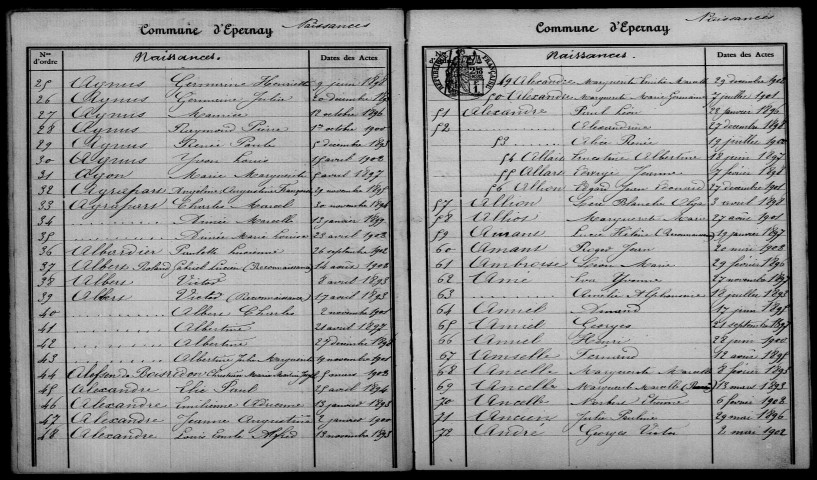 Commune d'Epernay
Naissances
Nos d'ordre
Naissances.
Dates des Actes
25 Agnus Germaine Henriette 9 juin 1898
26 Agnus Germaine Julia 20 décembre
27 Agnus Maurice 12 octobre 1896
28 Agnus Raymond Pierre 1er octobre 1900
29 Agnus Renée Paule 5 décembre 1898
30 Agnus Yvon Louis 15 avril 1902
31 Agon Marie Marguerite 5 avril 1897
32 Agrapart Angeline Augustine 29 novembre 1895
33 Agrapart Charles Marcel 30 novembre 1894
34 Aimée Marcelle 13 janvier 1899
35 Aimée Marie Louise 23 avril 1903
36 Albardier Paulette Lucienne 26 septembre 1902
37 Albers Gabriel Lucien (Reconnaissance) 14 août 1902
38 Albers Victor 8 avril 1893
39 Albers Victor (Reconnaissance) 17 avril 1893
40 Albert Charles 2 novembre
41 Albertine 21 avril 1897
42 Albertine 29 décembre
43 Albertine Marguerite 19 novembre
44 mars 1903
45 Alexandre Elie Paul 25 avril 1894
46 Alexandre Emilienne 13 janvier 1893
47 Alexandre Jeanne Augustine janvier 1900
48 Alexandre Louis Emile Alfred 13 novembre 1893
Commune d'Epernay
Naissances
Nos d'ordre
Naissances.
Dates des Actes
49 Alexandre Marguerite Emilie 29 décembre 1902
50 Alexandre Marguerite Marie Germaine 7 juillet 1901
51 Alexandre Paul Léon 28 janvier 1896
52 Alexandrine 27 décembre 1898
53 Alice Renée 19 juillet 1900
54 Allart Albertine 18 juin 1897
55 Allart Jeanne 7 février 1898
56 Allion Edgard 27 décembre 1901
57 Allion 3 avril 1898
58 Marguerite Marie 27 août 1901
59 Lucie Hélène 19 janvier 1897
60 Amant Roger Jean 20 mai 1902
61 Ambroise Marie 29 février 1896
62 Amé Yvonne 27 novembre 1897
63 Amélie Alphonsine 18 juillet 1893
64 Amiel Armand 17 juin
65 Amiel Georges 21 septembre 1897
66 Amiel Henri 28 juin 1900
67 Amselle Fernand 12 août 1895
68 Ancelle Marguerite 8 février 1893
69 Ancelle Marguerite Marcelle 13 mars 1893
70 Ancelle Etienne 6 février 1903
71 Ancien 29 mai 1896
72 André Georges Victor 2 mai 1902